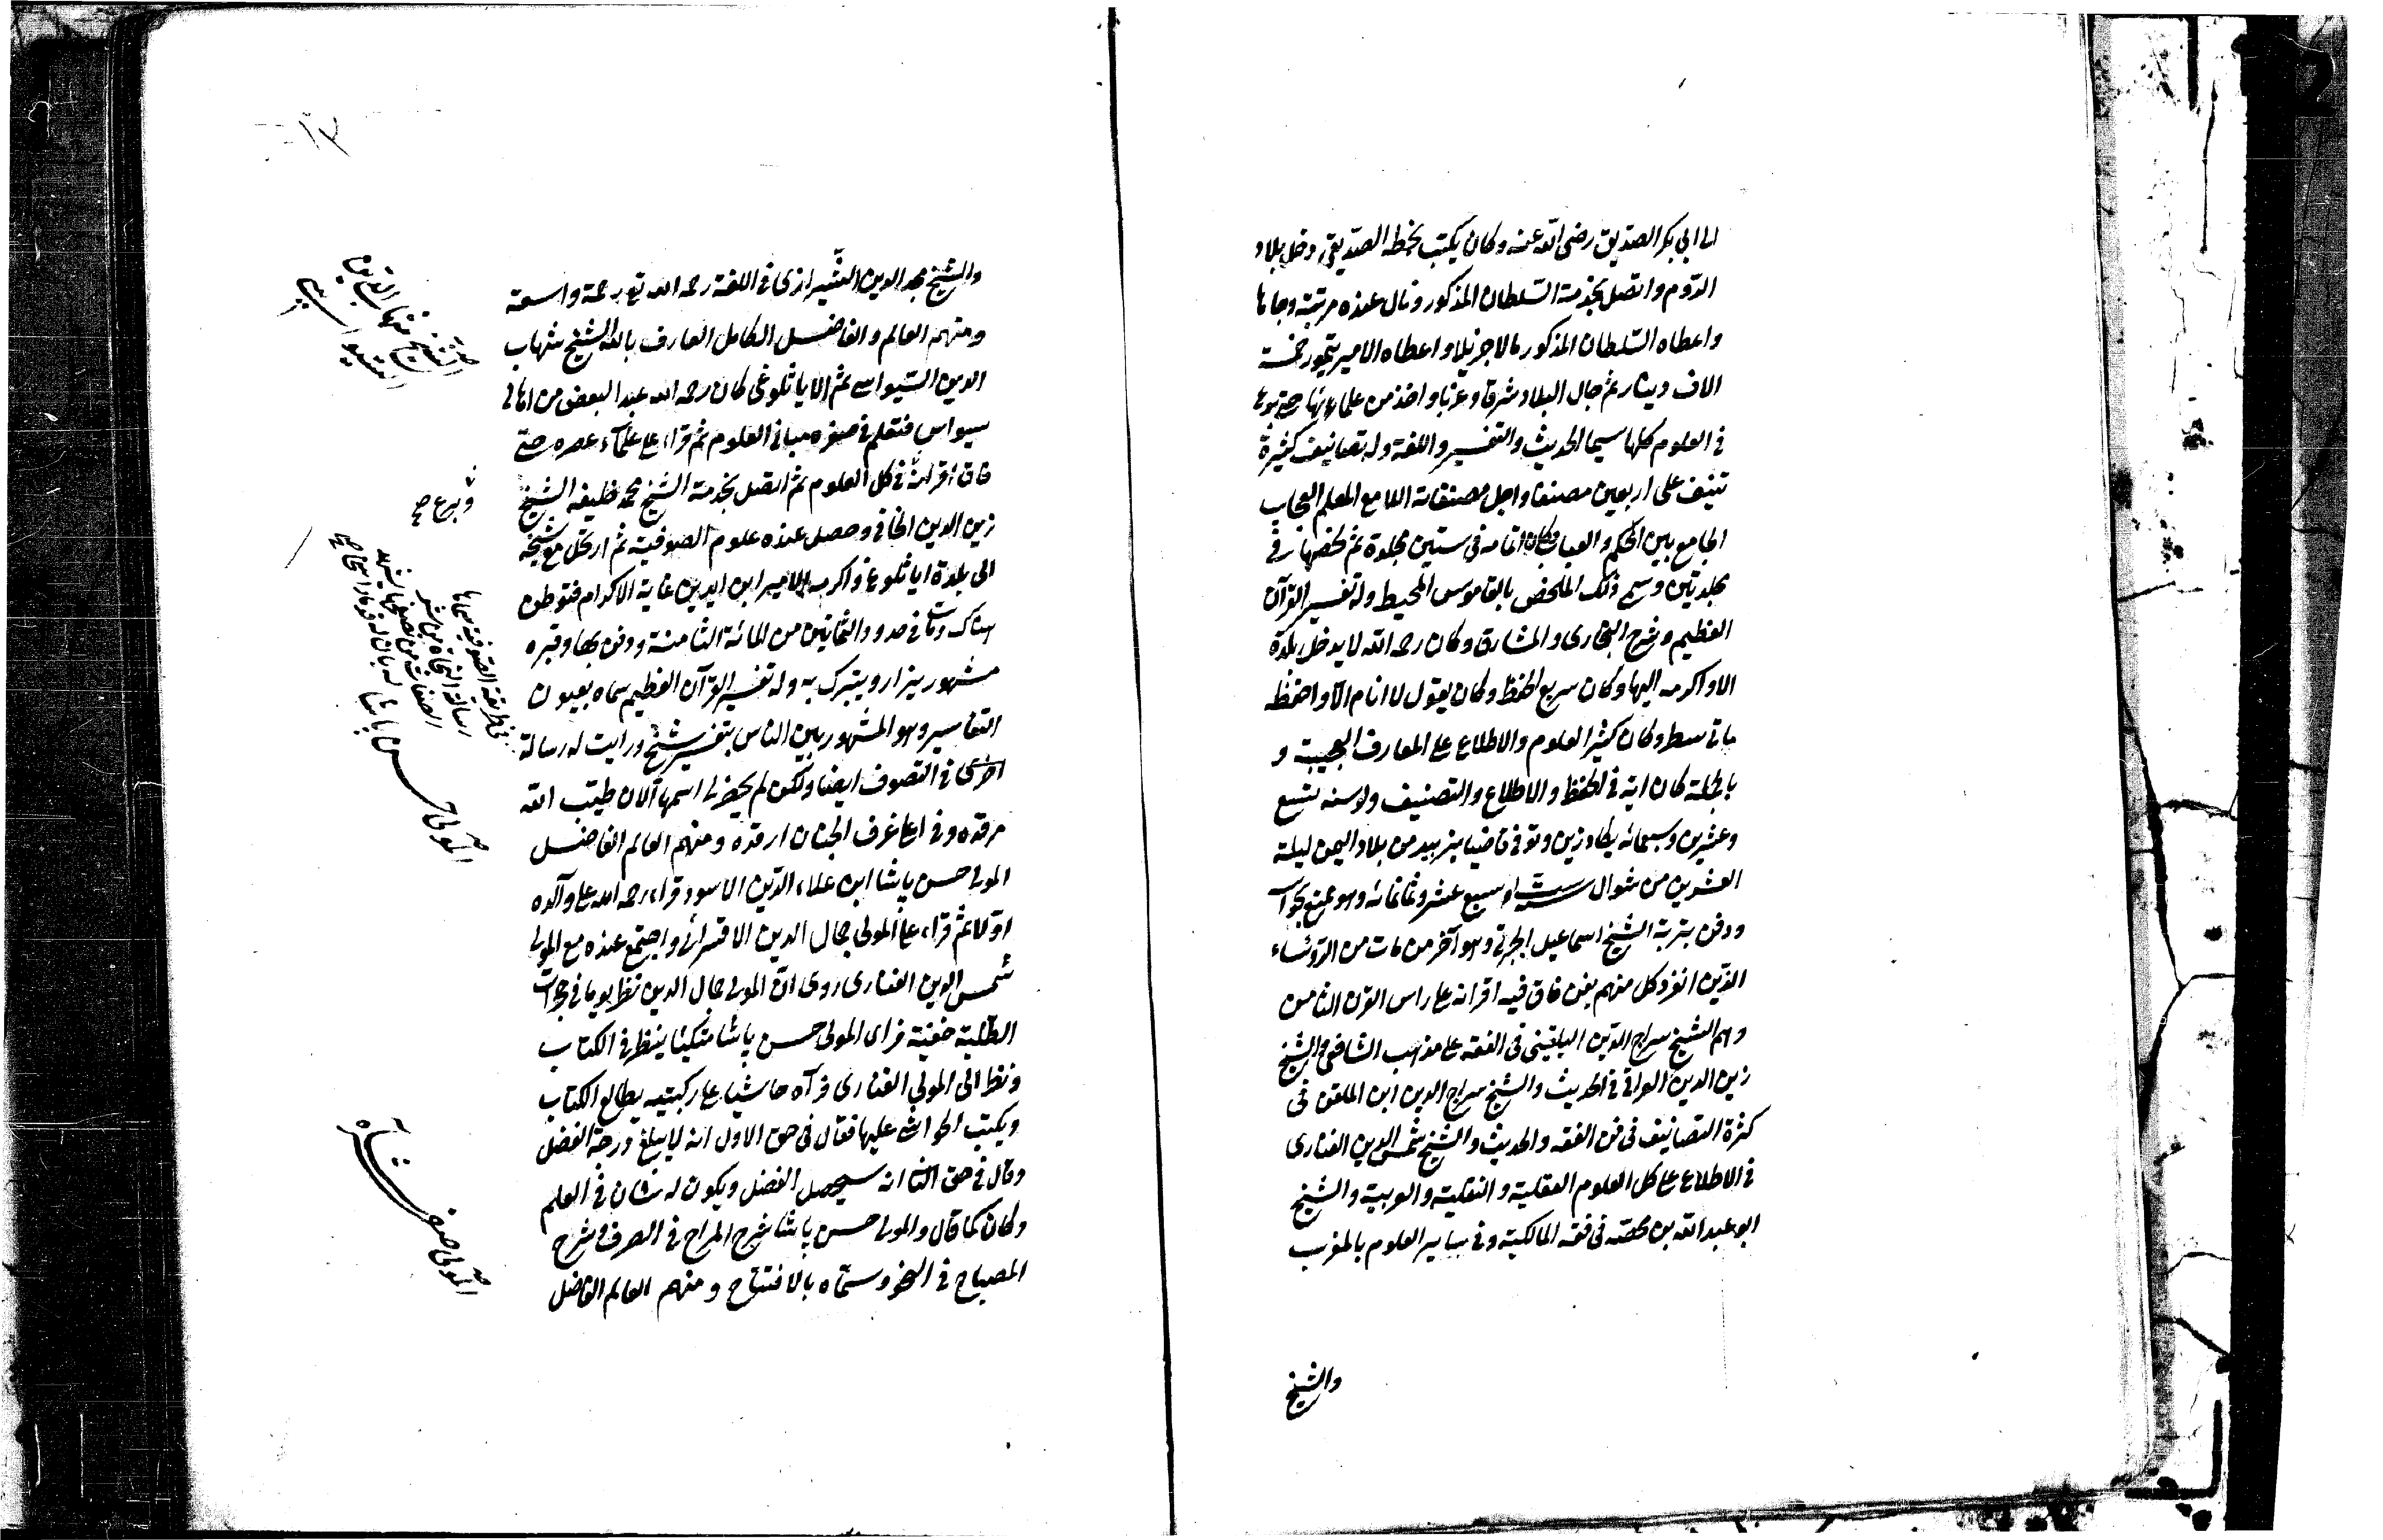 الى ابى بكر الصديق رضى الله عنه وكان يكتب بخطه الصديقى ودخل بلاد
الروم واتصل بخدمة السلطان المذكور ونال عنده مرتبة وجاها
واعطاه السلطان المذكور مالا جزيلا واعطاه الامير تيمور خمسة
الاف دينار ثم جال البلاد شرقا وغربا واخذ من علمائها حتى برع
فى العلوم كلها سيما الحديث والتفسير واللغة وله تصانيف كثيرة
تنيف على اربعين مصنفا واجل مصنفاته اللامع المعلم العجاب
الجامع بين المحكم والعباب وكان تمامه فى ستين مجلدة ثم لخصها فى
مجلدتين وسمى ذلك الملخص بالقاموس المحيط وله تفسير القرآن
العظيم وشرح البخارى والمشارق وكان رحمه الله لا يدخل بلدة
الا واكرمه اليها وكان سريع الحفظ وكان يقول لا انام الا واحفظ
مأتى سطر وكان كثير العلوم والاطلاع على المعارف العجيبة و
بالجملة كان اية فى الحفظ والاطلاع والتصنيف ولد سنة تسع
وعشرين وسبعمائه بكازرين وتوفى قاضيا بزبيد من بلاد اليمن ليلة
العشرين من شوال سنة ست او سبع عشر وثمانمائه وهو ممتع بحواسه
ودفن بتربة الشيخ اسماعيل الجبرتى وهو آخر من مات من الرؤساء
الذين انفرد كل منهم بفن فاق فيه اقرانه على راس القرن الثامن
وهم الشيخ سراج الدين البلقينى فى الفقه على مذهب الشافعى والشيخ
زين الدين العراقى فى الحديث والشيخ سراج الدين ابن الملقن فى
كثرة التصانيف فى فن الفقه والحديث والشيخ شمس الدين الفنارى
فى الاطلاع على كل العلوم العقلية والنقلية والعربية والشيخ
ابو عبد الله بن عرفة فى فقه المالكية وفى سائر العلوم بالمغرب
والشيخ
والشيخ مجد الدين الشيرازى فى اللغة رحمه الله تع رحمة واسعة
ومنهم العالم والفاضل الكامل العارف بالله الشيخ شهاب
الدين السيواسى ثم الاياثلوغى كان رحمه الله عبدا لبعض من اهالى
سيواس فتعلم فى صغره مبانى العلوم ثم قراء على علماء عصره حتى
فاق اقرانه فى كل العلوم ثم اتصل بخدمة الشيخ محمد خليفة الشيخ
زين الدين الخافى وحصل عنده علوم الصوفية ثم ارتحل مع شيخه
الى بلدة اياثلوغ واكرمه الامير ابن ايدين غاية الاكرام فتوطن
هناك ومات فى حدود الثمانين من المائة الثامنة ودفن بها وقبره
مشهور يزار ويتبرك به وله تفسير القرآن العظيم سماه بعيون
التفاسير وهو المشهور بين الناس بتفسير شيخ ورايت له رسالة
اخرى فى التصوف ايضا ولكن لم يحضرنى اسمها الان طيب الله
مرقده وفى اعلى غرف الجنان ارقده ومنهم العالم الفاضل
المولى حسن پاشا ابن علاء الدين الاسود قراء رحمه الله على والده
اولا ثم قراء على المولى جمال الدين الاقسرائى واجتمع عنده مع المولى
شمس الدين الفنارى روى ان المولى جمال الدين نظر يوما فى حجرات
الطلبة خفية فراى المولى حسن پاشا متكئا ينظر فى الكتاب
ونظر الى المولى الفنارى فرآه جاثيا على ركبتيه يطالع الكتاب
ويكتب الحواشى عليها فقال فى حق الاول انه لا يبلغ درجة الفضل
وقال فى حق الثانى انه سيحصل الفضل ويكون له شان فى العلم
وكان كما قال والمولى حسن پاشا شرح المراح فى الصرف وشرح
المصباح فى النحو وسماه بالافتتاح ومنهم العالم الفاضل
الشيخ شهاب الدين
السيواسى
وبرع صح
فى طريقة الصوفية سماها
رسالة النجاة من شر
الصفات
المولى حسن پاشا
المولى صفر شاه
١٣